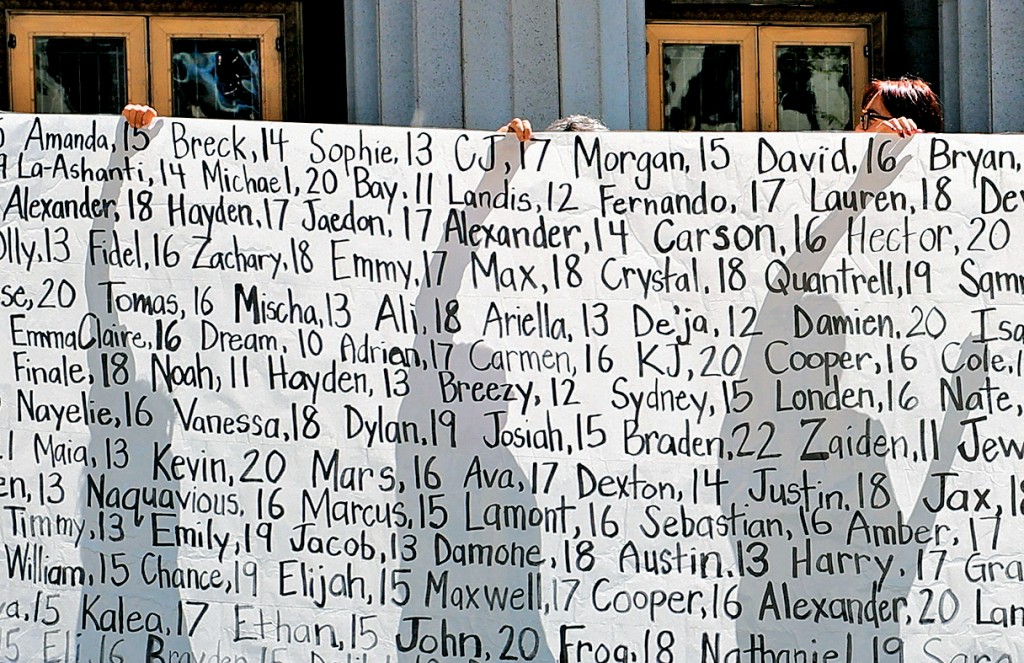 Amanda, 15 Breck, 14 Sophie, 13 CJ, 17 Morgan, 15 David, 16 Bryan,
La-Ashanti, 14 Michael, 20 Bay, 11 Landis, 12 Fernando, 17 Lauren, 18 De
Alexander, 18 Hayden, 17 Jaedon, 17 Alexander, 14 Carson, 16 Hector, 20
olly, 13 Fidel, 16 Zachary, 18 Emmy, 17 Max, 18 Crystal, 18 Quantrell, 19 Sam
se, 20 Tomas, 16 Mischa, 13 Ali, 18 Ariella, 13 De'ja, 12 Damien, 20 Isa
EmmaClaire, 16 Dream, 10 Adrien, 17 Carmen, 16 KJ, 20 Cooper, 16 Cole, 1
Finale, 18 Noah, 11 Hayden, 13 Breezy, 12 Sydney, 15 Londen, 16 Nate,
Nayelie, 16 Vanessa, 18 Dylan, 19 Josiah, 15 Braden, 22 Zaiden, 11 Jew
Maia, 13 Kevin, 20 Mars, 16 Ava, 17 Dexton, 14 Justin, 18 Jax, 18
en, 13 Naquavious, 16 Marcus, 15 Lamont, 16 Sebastian, 16 Amber, 17
Timmy, 13 Emily, 19 Jacob, 13 Damone, 18 Austin, 13 Harry, 17 Gra
William, 15 Chance, 19 Elijah, 15 Maxwell, 17 Cooper, 16 Alexander, 20 Lan
va, 15 Kalea, 17 Ethan, 15 John, 20 Frog, 18 Nathaniel, 19 Sara
15 Eli, 16 Brayden